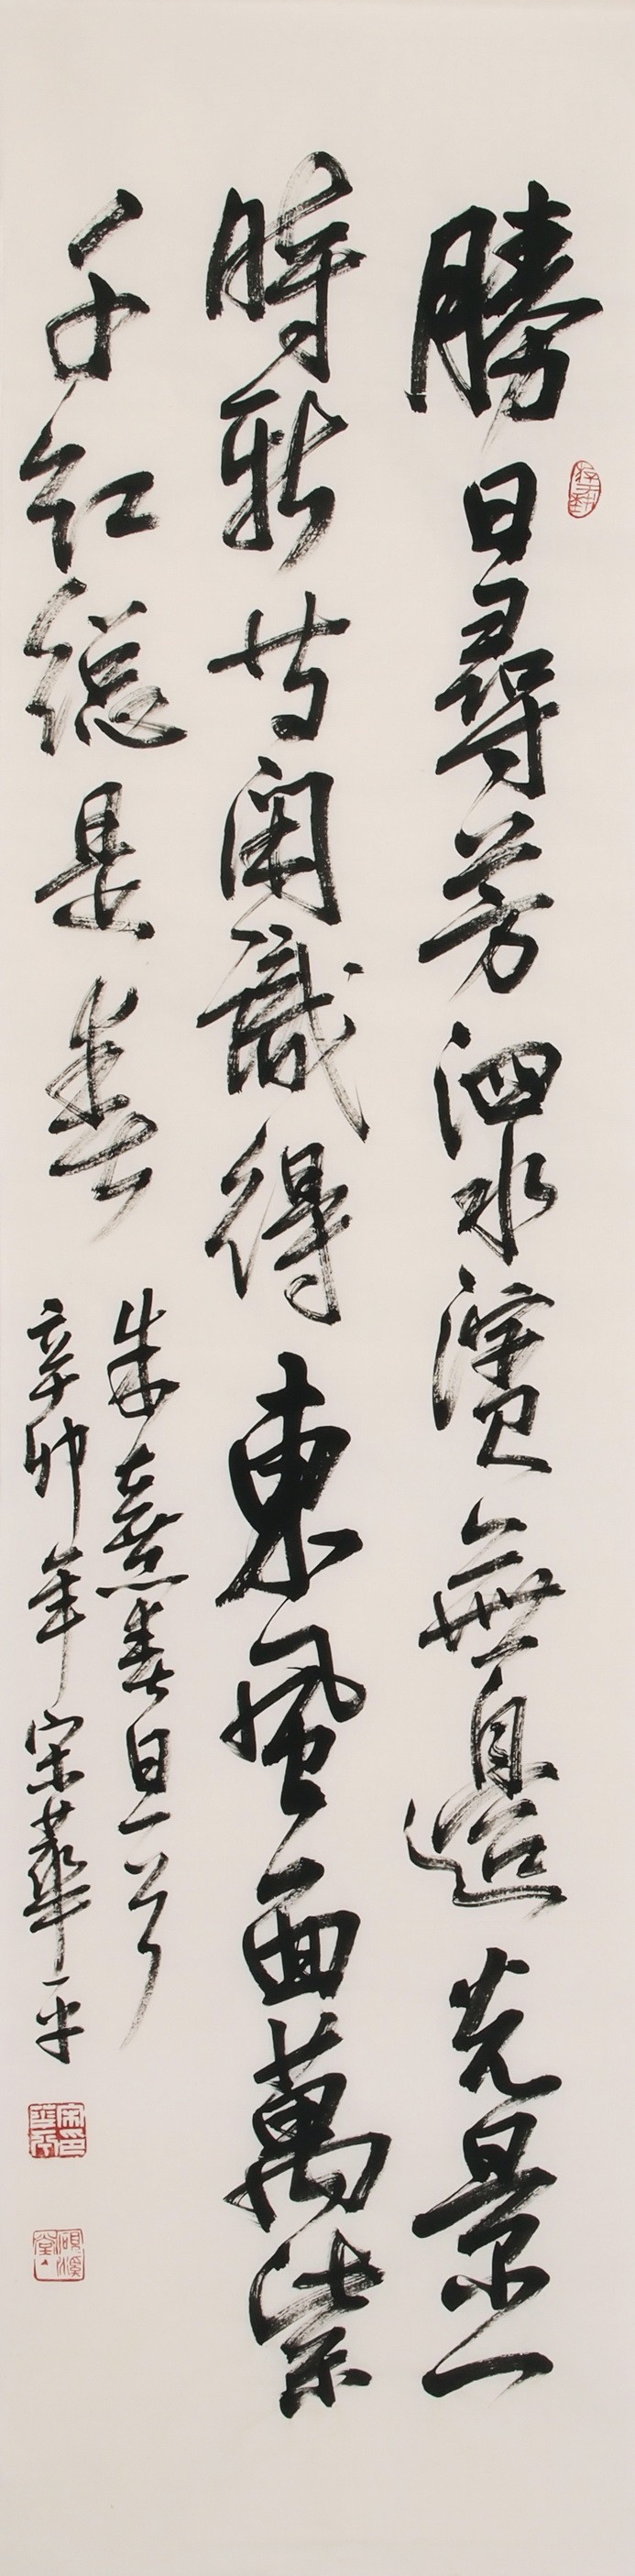 勝日尋芳泗水濱無邊光景一
時新等閑識得東風面萬紫
千紅總是春
朱熹春日一首
辛卯年宋華平
宋華平印